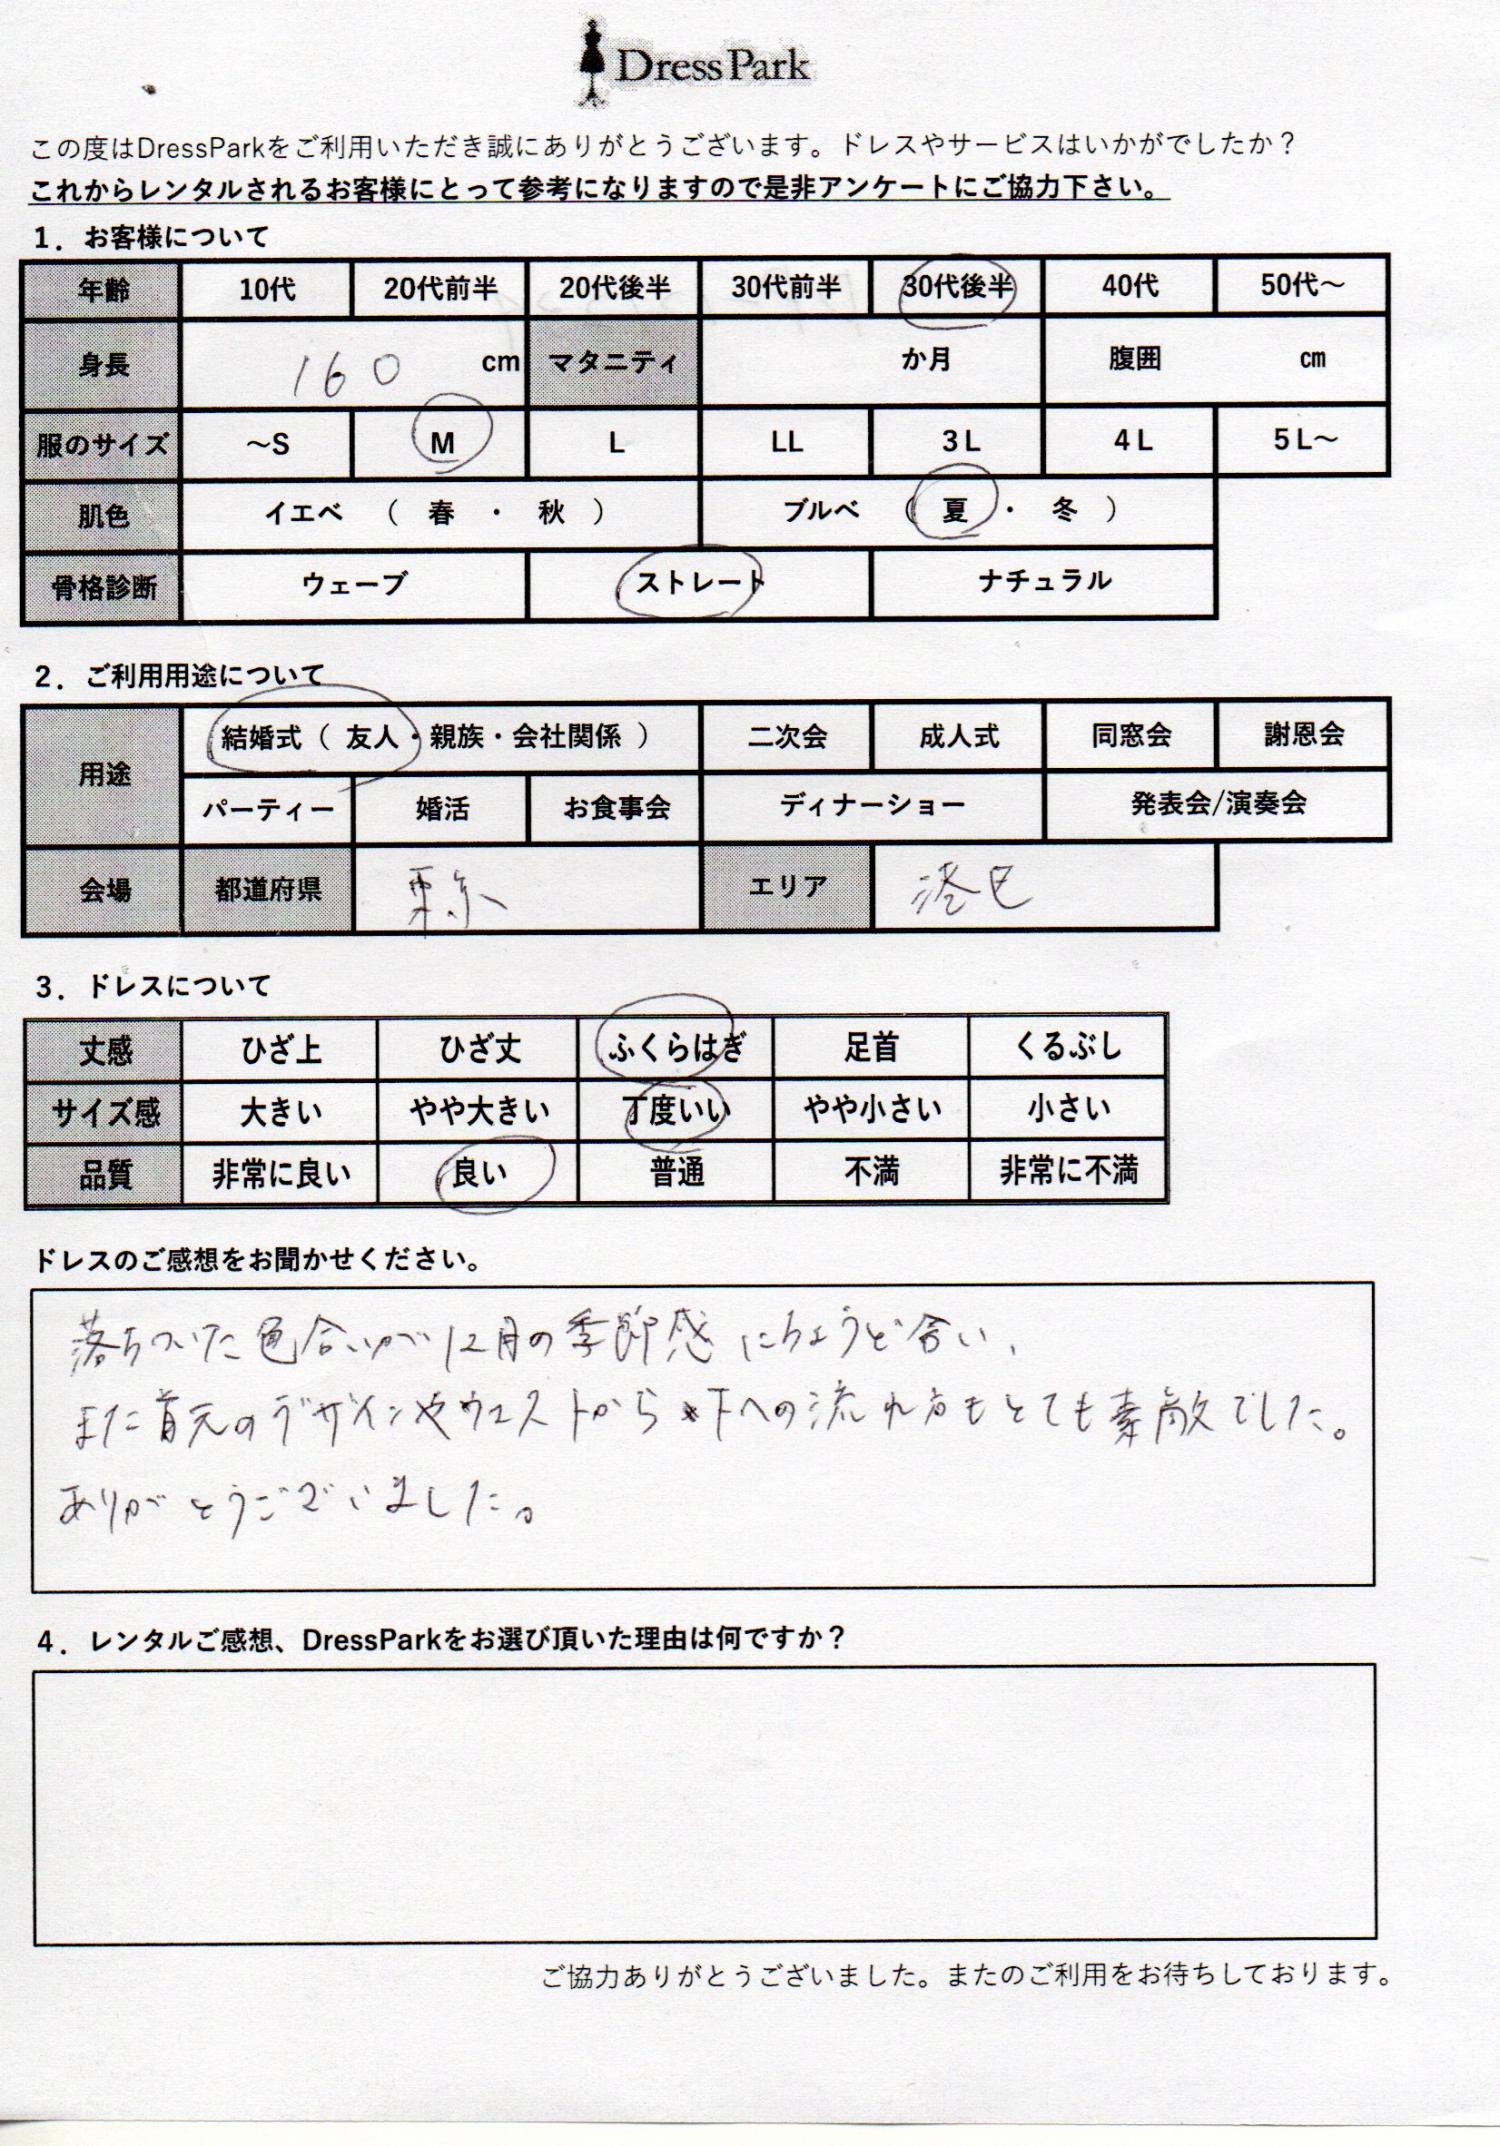 Dress Park
この度はDressParkをご利用いただき誠にありがとうございます。ドレスやサービスはいかがでしたか？
これからレンタルされるお客様にとって参考になりますので是非アンケートにご協力下さい。
1．お客様について
年齢 10代 20代前半 20代後半 30代前半 30代後半 40代 50代～
身長 160 cm マタニティ か月 腹囲 cm
服のサイズ ～S M L LL 3L 4L 5L～
肌色 イエベ （ 春 ・ 秋 ） ブルベ （ 夏 ・ 冬 ）
骨格診断 ウェーブ ストレート ナチュラル
2．ご利用用途について
用途 結婚式（ 友人・親族・会社関係 ） 二次会 成人式 同窓会 謝恩会
パーティー 婚活 お食事会 ディナーショー 発表会/演奏会
会場 都道府県 東京 エリア 港区
3．ドレスについて
丈感 ひざ上 ひざ丈 ふくらはぎ 足首 くるぶし
サイズ感 大きい やや大きい 丁度いい やや小さい 小さい
品質 非常に良い 良い 普通 不満 非常に不満
ドレスのご感想をお聞かせください。
落ちついた色合いが12月の季節感にちょうど合い、
また首元のデザインやウエストから下への流れ方もとても素敵でした。
ありがとうございました。
4．レンタルご感想、DressParkをお選び頂いた理由は何ですか？
ご協力ありがとうございました。またのご利用をお待ちしております。